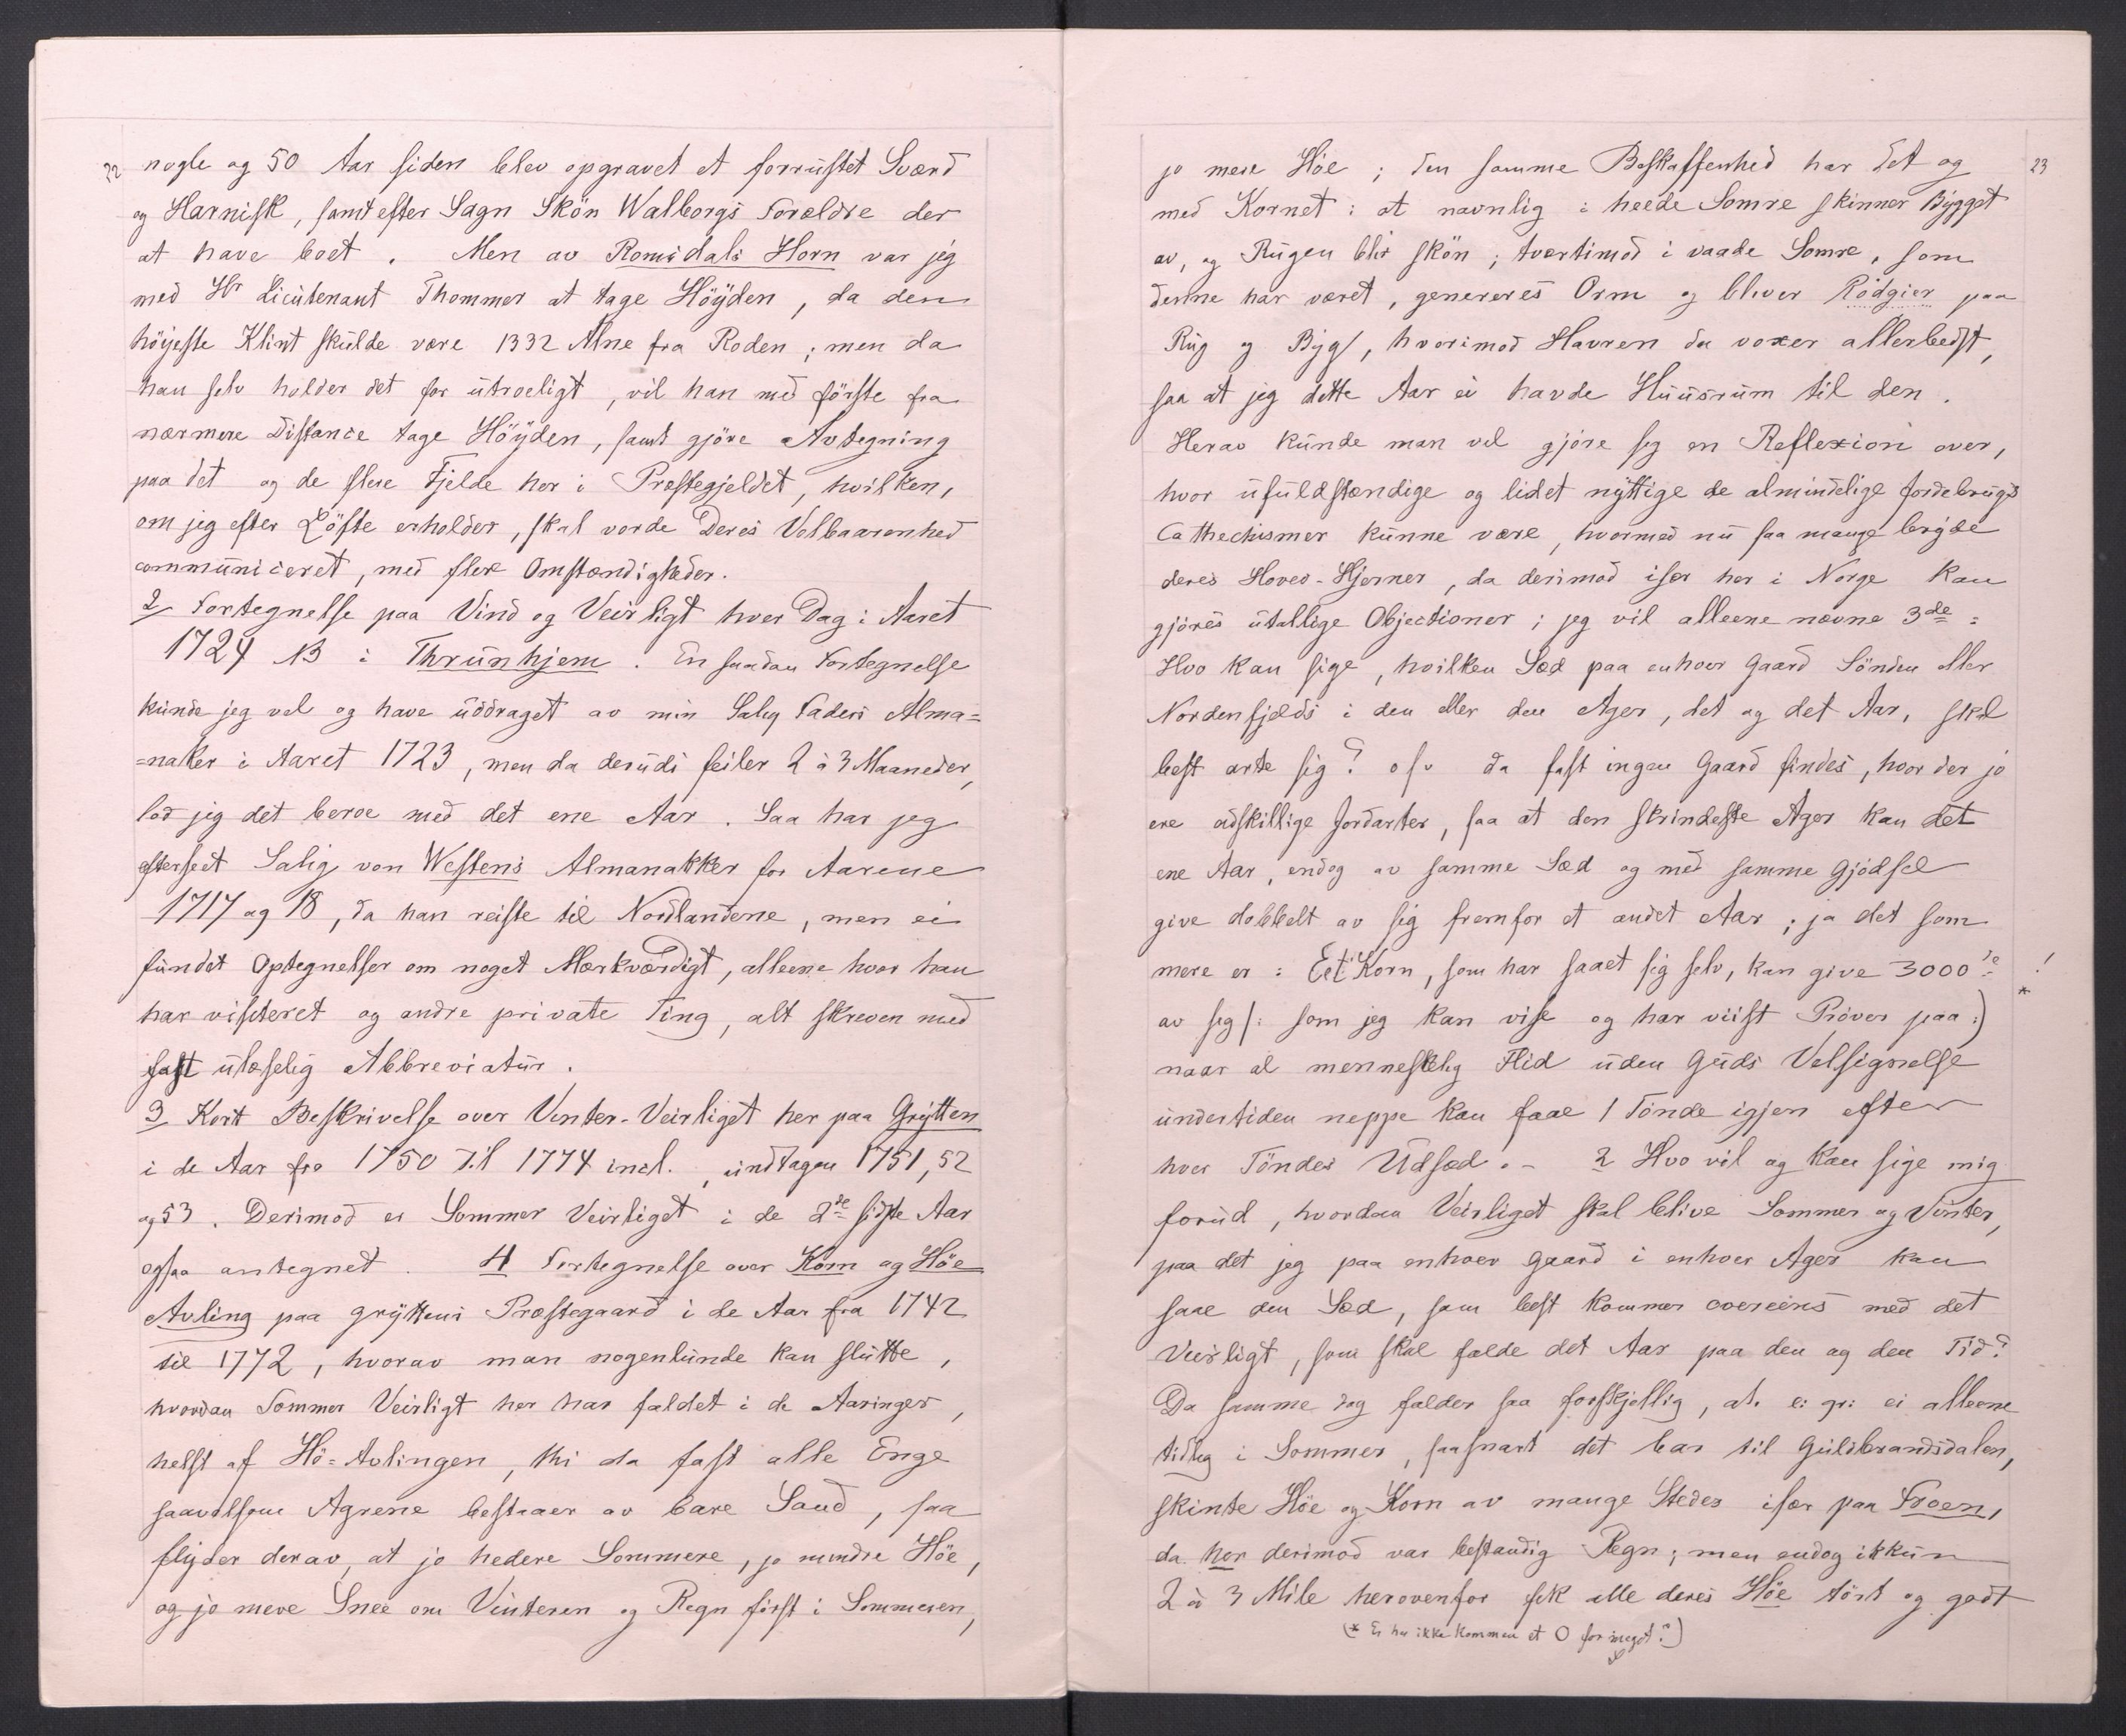 22
nogle og 50 Aar siden blev opgravet et forrustet Sværd
og Harnisk, samt efter Sagn Skön Walborgs Forældre der
at have boet. Men av Romsdals Horn var jeg
med Hr Lieutenant Thommer at tage Höÿden, da den
höjeste Klint skulde være 1332 Alne fra Roden; men da
han selv holder det for utroeligt, vil han med förste fra
nærmere Distance tage Höÿden, samt gjöre Avtegning
paa det og de flere Fjelde her i Præstegjeldet, hvilken,
om jeg efter Löfte erholder, skal vorde Deres Velbaarenhed
communiceret, med flere Omstændigheder.
2 Fortegnelse paa Vind og Veirligt hver Dag i Aaret
1724 NB i Thrunhjem. En saadan Fortegnelse
kunde jeg vel og have uddraget av min Salig Faders Alma=
=naker i Aaret 1723, men da derudi feiler 2 à 3 Maaneder,
lod jeg det beroe med det ene Aar. Saa har jeg
efterseet Salig von Westens Almanakker for Aarene
1717 og 18, da han reiste til Nordlandene, men ei
fundet Optegnelser om noget Mærkværdigt, alleene hvor han
har visiteret og andre private Ting, alt skreven med
fast ulæselig Abbreviatur.
3 Kort Beskrivelse over Vinter-Veirliget her paa Grÿtten
i de Aar fra 1750 til 1774 incl., undtagen 1751, 52
og 53. Derimod er Sommer Veirliget i de 2de sidste Aar
ogsaa antegnet. 4 Fortegnelse over Korn og Höe
Avling paa Grÿttens Præstegaard i de Aar fra 1742
til 1772, hvorav man nogenlunde kan slutte,
hvordan Sommer Veirligt her har faldet i de Aaringer,
helst af Hö-Avlingen, thi da fast alle Enge
saavelsom Agrene bestaaer av bare Sand, saa
flÿder derav, at jo hedere Sommere, jo mindre Höe,
og jo mere Snee om Vinteren og Regn först i Sommeren,
23
jo mere Höe; den samme Beskaffenhed har det og
med Kornet: at navnlig i heede Somre skinner Bÿgget
av, og Rugen blir skön; tvertimod i vaade Somre, som
denne har været, genereres Orm og bliver Rödgier paa
Rug og Bÿg/, hvorimod Havren da voxer allerbedst,
saa at jeg dette Aar ei havde Huusrum til den.
Herav kunde man vel gjöre sig en Reflexion over,
hvor ufuldstændige og lidet nÿttige de almindelige Jordebrugs
Cathechismer kunne være, hvormed nu saa mange brÿde
deres Hoved-Hjerner, da derimod især her i Norge kan
gjöres utallige Objectioner; jeg vil alleene nævne 3de:
Hvo kan sige, hvilken Sæd paa enhver Gaard Sönden eller
Nordenfjelds i den eller den Ager, det og det Aar, skal
best arte sig? osv da fast ingen Gaard findes, hvor der jo
ere adskillige Jordarter, saa at den skrindeste Ager kan det
ene Aar, endog av samme Sæd og med samme Gjödsel
give dobbelt av sig fremfor et andet Aar; ja det som
mere er: Eet Korn, som har saaet sig selv, kan give 3000de !
av sig /: som jeg kan vise og har viist Pröver paa :) *
naar al menneskelig Flid uden Guds Velsignelse
undertiden neppe kan faae 1 Tönde igjen efter
hver Töndes Udsæd. - 2 Hvo vil og kan sige mig
forud, hvordan Veirliget skal blive Sommer og Vinter,
paa det jeg paa enhver Gaard i enhver Ager kan
saae den Sæd, som best kommer overeens med det
Veirligt, som skal falde det Aar paa den og den Tid?
Da samme dog falder saa forskjellig, at e: gr: ei alleene
tidlig i Sommer, saasnart det bar til Guldbrandsdalen,
skinte Höe og Korn av mange Steder især paa Froen,
da her derimod var bestandig Regn; men endog ikkun
2 à 3 Mile herovenfor fik alle deres Höe tört og godt
(* Er her ikke kommen et 0 for meget?)